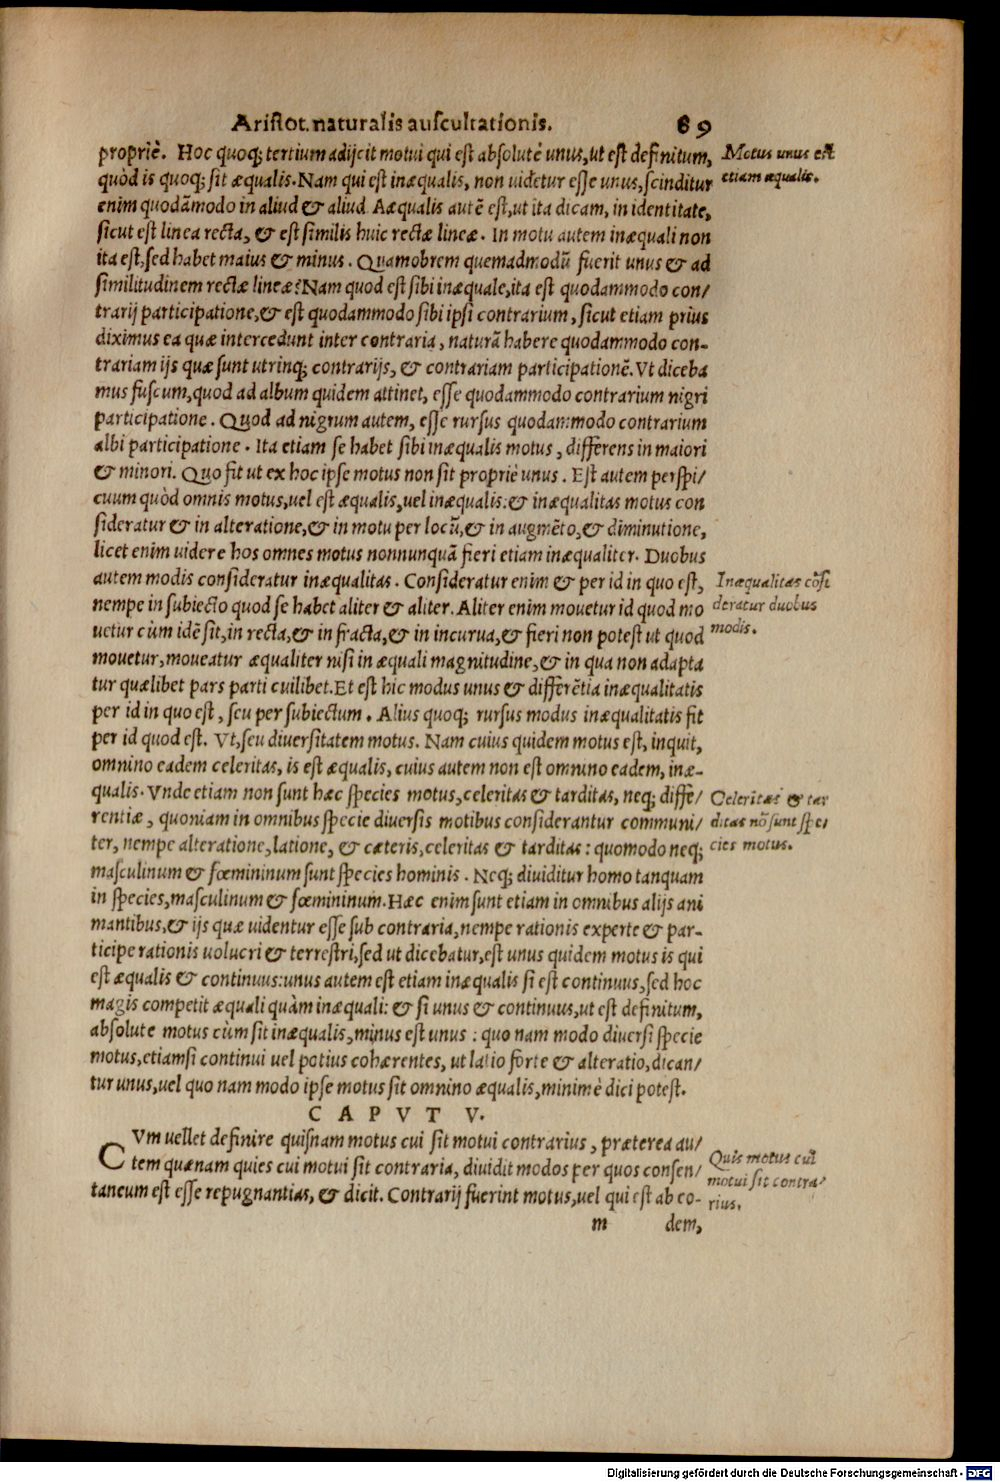 Aristot. naturalis auscultationis. 89
propriè. Hoc quoq; tertium adijcit motui qui est absolutè unus, ut est definitum,
quòd is quoq; sit æqualis. Nam qui est inæqualis, non uidetur esse unus, scinditur
enim quodãmodo in aliud & aliud. Aæqualis autẽ est, ut ita dicam, in identitate,
sicut est linea recta, & est similis huic rectæ lineæ. In motu autem inæquali non
ita est, sed habet maius & minus. Quamobrem quemadmodũ fuerit unus & ad
similitudinem rectæ lineæ? Nam quod est sibi inæquale, ita est quodammodo con/
trarij participatione, & est quodammodo sibi ipsi contrarium, sicut etiam prius
diximus ea quæ intercedunt inter contraria, naturã habere quodammodo con-
trariam ijs quæ sunt utrinq; contrarijs, & contrariam participationẽ. Vt diceba
mus fuscum, quod ad album quidem attinet, esse quodammodo contrarium nigri
participatione. Quod ad nigrum autem, esse rursus quodammodo contrarium
albi participatione. Ita etiam se habet sibi inæqualis motus, differens in maiori
& minori. Quo fit ut ex hoc ipse motus non sit propriè unus. Est autem perspi/
cuum quòd omnis motus, uel est æqualis, uel inæqualis: & inæqualitas motus con
sideratur & in alteratione, & in motu per locũ, & in augmẽto, & diminutione,
licet enim uidere hos omnes motus nonnunquã fieri etiam inæqualiter. Duobus
autem modis consideratur inæqualitas. Consideratur enim & per id in quo est,
nempe in subiecto quod se habet aliter & aliter. Aliter enim mouetur id quod mo
uetur cùm idẽ sit, in recta, & in fracta, & in incurua, & fieri non potest ut quod
mouetur, moueatur æqualiter nisi in æquali magnitudine, & in qua non adapta
tur quælibet pars parti cuilibet. Et est hic modus unus & differẽtia inæqualitatis
per id in quo est, seu per subiectum. Alius quoq; rursus modus inæqualitatis fit
per id quod est. Vt, seu diuersitatem motus. Nam cuius quidem motus est, inquit,
omnino eadem celeritas, is est æqualis, cuius autem non est omnino eadem, inæ-
qualis. Vnde etiam non sunt hæc species motus, celeritas & tarditas, neq; diffe/
rentiæ, quoniam in omnibus specie diuersis motibus considerantur communi/
ter, nempe alteratione, latione, & cæteris, celeritas & tarditas: quomodo neq;
masculinum & fœmininum sunt species hominis. Neq; diuiditur homo tanquam
in species, masculinum & fœmininum. Hæc enim sunt etiam in omnibus alijs ani
mantibus, & ijs quæ uidentur esse sub contraria, nempe rationis experte & par-
ticipe rationis uolucri & terrestri, sed ut dicebatur, est unus quidem motus is qui
est æqualis & continuus: unus autem est etiam inæqualis si est continuus, sed hoc
magis competit æquali quàm inæquali: & si unus & continuus, ut est definitum,
absolute motus cùm sit inæqualis, minus est unus: quo nam modo diuersi specie
motus, etiamsi continui uel potius cohærentes, ut latio forte & alteratio, dican/
tur unus, uel quo nam modo ipse motus sit omnino æqualis, minimè dici potest.
CAPVT V.
CVm uellet definire quisnam motus cui sit motui contrarius, præterea au/
tem quænam quies cui motui sit contraria, diuidit modos per quos consen/
taneum est esse repugnantias, & dicit. Contrarij fuerint motus, uel qui est ab eo-
m dem,
Motus unus est
etiam æqualis.
Inæqualitas cõsi
deratur duobus
modis.
Celeritas & tar
ditas nõ sunt spe;
cies motus.
Quis motus cui
motui sit contra/
rius.
Digitalisierung gefördert durch die Deutsche Forschungsgemeinschaft - DFG